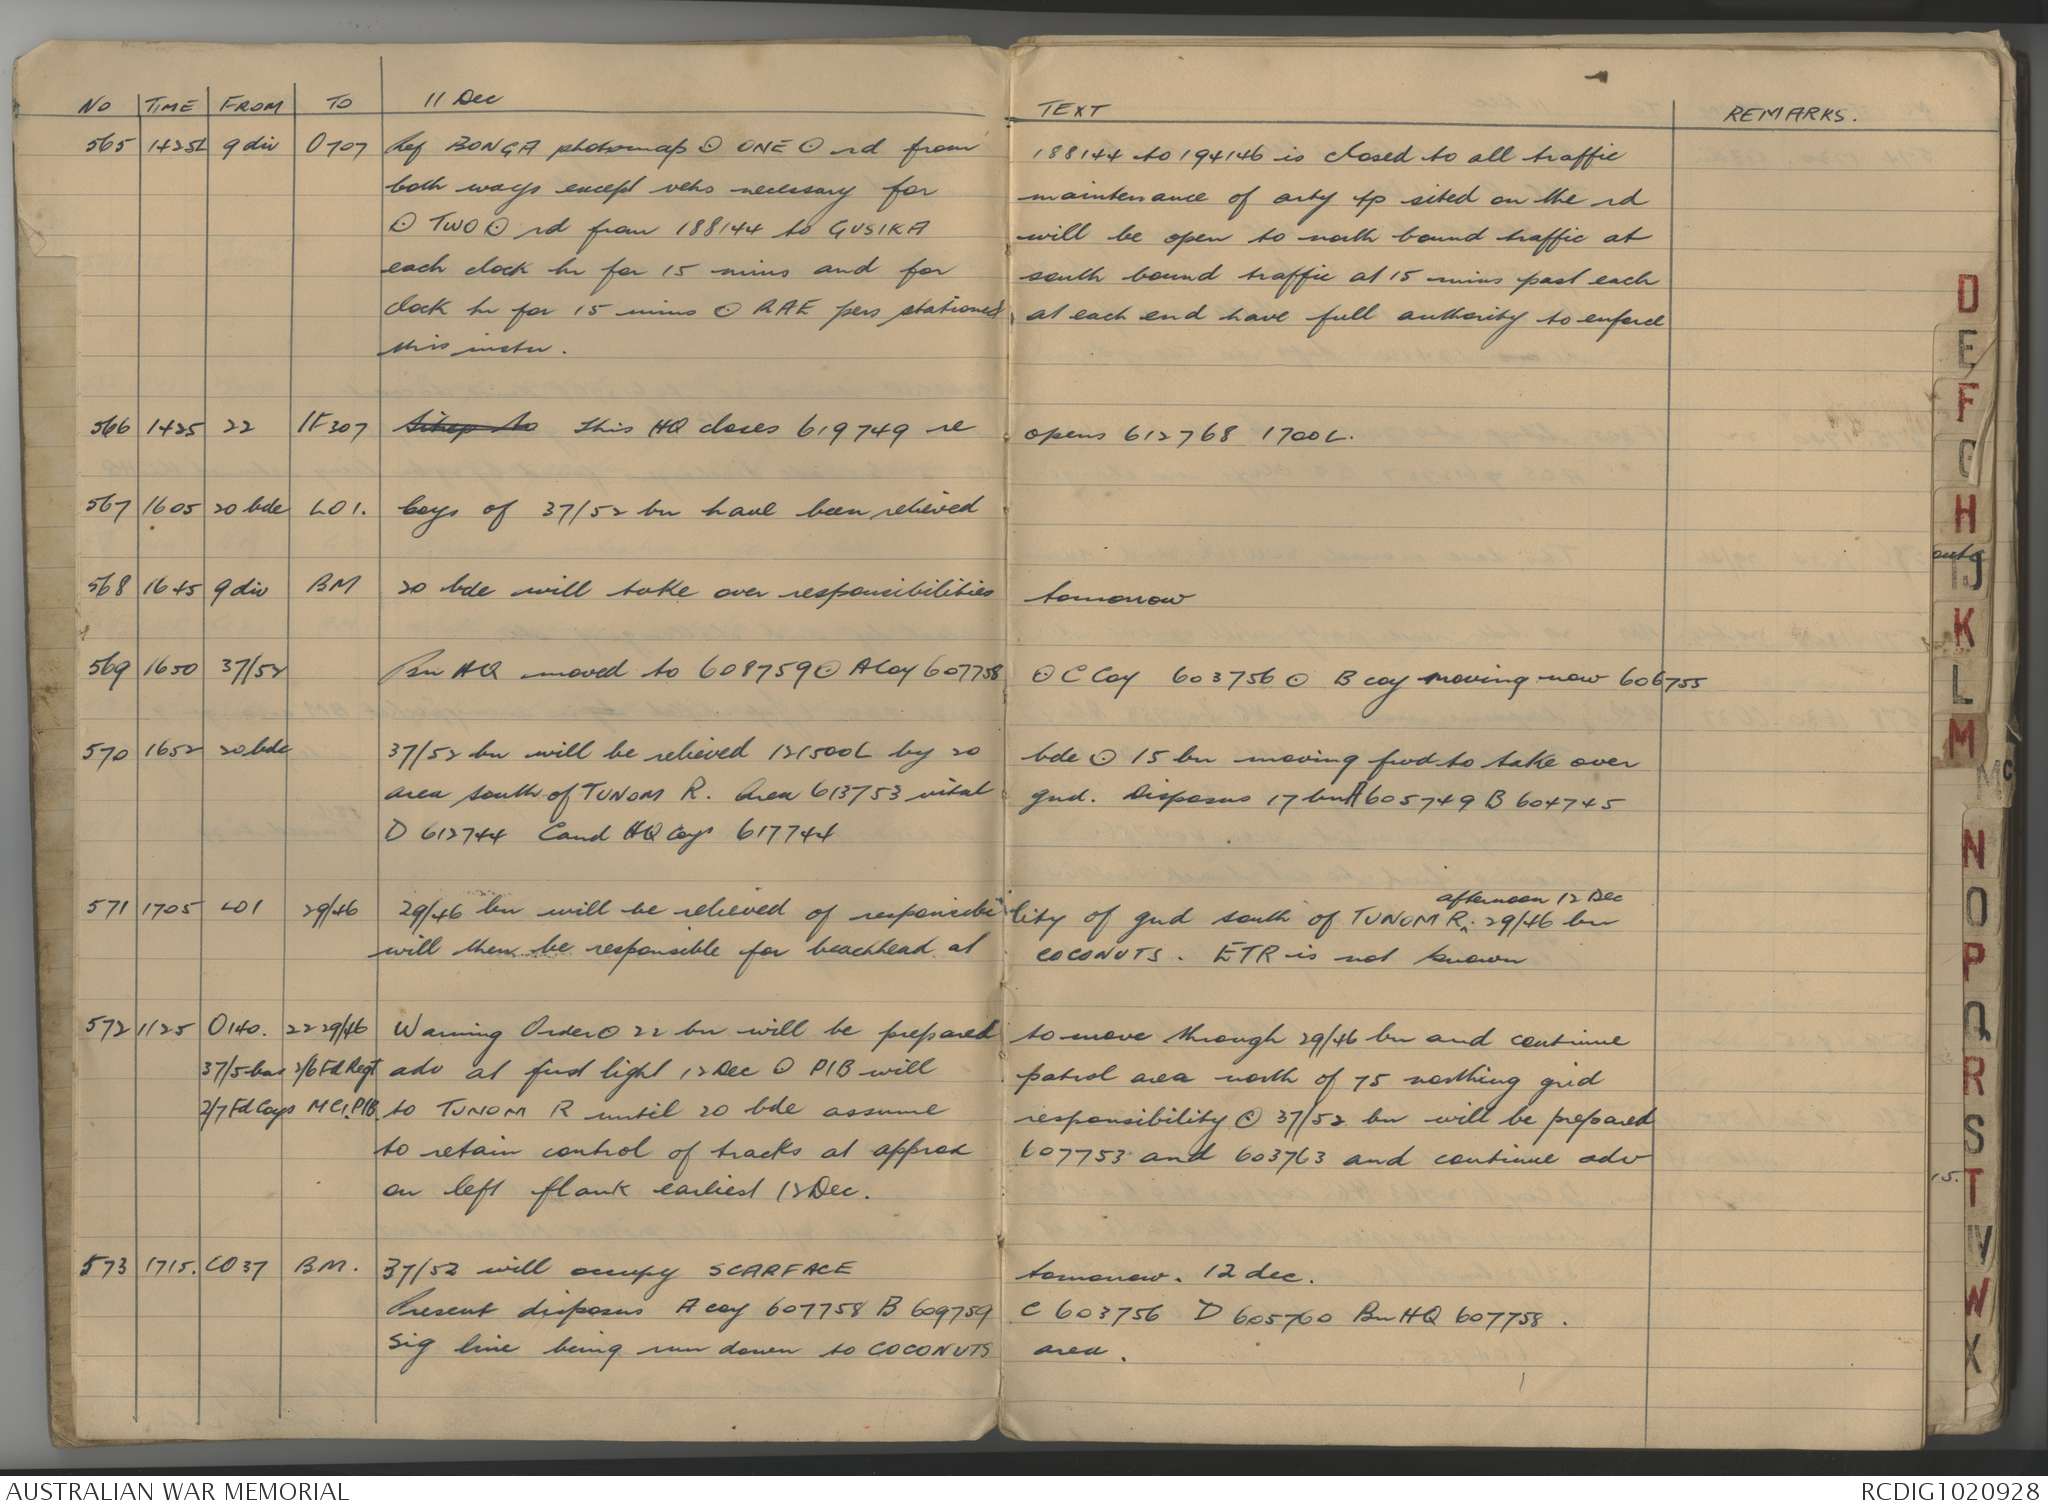 No TIME FROM TO 11 Dec TEXT REMARKS.
565 1425L 9 div O707 Ref BONGA photomap ⊙ ONE ⊙ rd from 188144 to 194146 is closed to all traffic
both ways except vehs necessary for maintenance of arty tp sited on the rd
⊙ TWO ⊙ rd from 188144 to GUSIKA will be open to north bound traffic at
each clock hr for 15 mins and for south bound traffic at 15 mins past each
clock hr for 15 mins ⊙ RAE pers stationed at each end have full authority to enforce
this instr.
566 1425 22 307 Sitrep to this HQ closes 619749 re opens 612768 1700L.
567 1605 20 bde LO1. Coys of 37/52 bn have been relieved
568 1645 9 div BM 20 bde will take over responsibilities tomorrow
569 1650 37/52 Bn HQ moved to 608759 ⊙ A Coy 607758 ⊙ C Coy 603756 ⊙ B coy moving now 606755
570 1652 20 bde 37/52 bn will be relieved 121500L by 20 bde ⊙ 15 bn moving fwd to take over
area south of TUNOM R. Area 613753 vital gnd. Disposns 17 bn A 605749 B 604745
D 612744 C and HQ Coys 617744
571 1705 LO1 29/46 29/46 bn will be relieved of responsibility of gnd south of TUNOM R. afternoon 12 Dec 29/46 bn
will then be responsible for beachhead at COCONUTS. ETR is not known
572 1125 O140. 22 29/46 Warning Order ⊙ 22 bn will be prepared to move through 29/46 bn and continue
37/5 bns 2/6 Fd Regt adv at first light 12 Dec ⊙ PIB will patrol area north of 75 northing grid
2/7 Fd Coys MG, PIB. to TUNOM R until 20 bde assume responsibility ⊙ 37/52 bn will be prepared
to retain control of tracks at approx 607753 and 603763 and continue adv
on left flank earliest 12 Dec.
573 1715. CO 37 BM. 37/52 will occupy SCARFACE tomorrow. 12 dec.
Present disposns A coy 607758 B 609759 C 603756 D 605760 Bn HQ 607758.
Sig line being run down to COCONUTS area.
D
E
F
G
H
IJ
K
L
M
Mc
N
O
P
Q
R
S
T
W
X
AUSTRALIAN WAR MEMORIAL RCDIG1020928